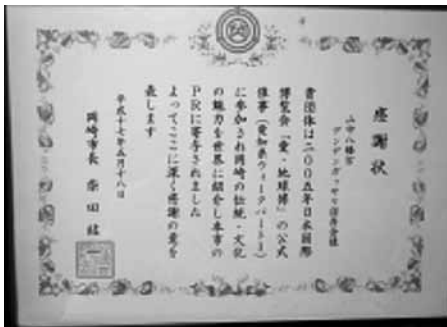 感謝状
山中八幡宮
デンデンガッサリ保存会様
貴団体は二〇〇五年日本国際
博覧会「愛・地球博」の公式
催事(愛知県ウィークパートⅠ)
に参加され岡崎の伝統・文化
の魅力を世界に紹介し本市の
PRに寄与されました
よってここに深く感謝の意を
表します
平成十七年五月十八日
岡崎市長 柴田紘